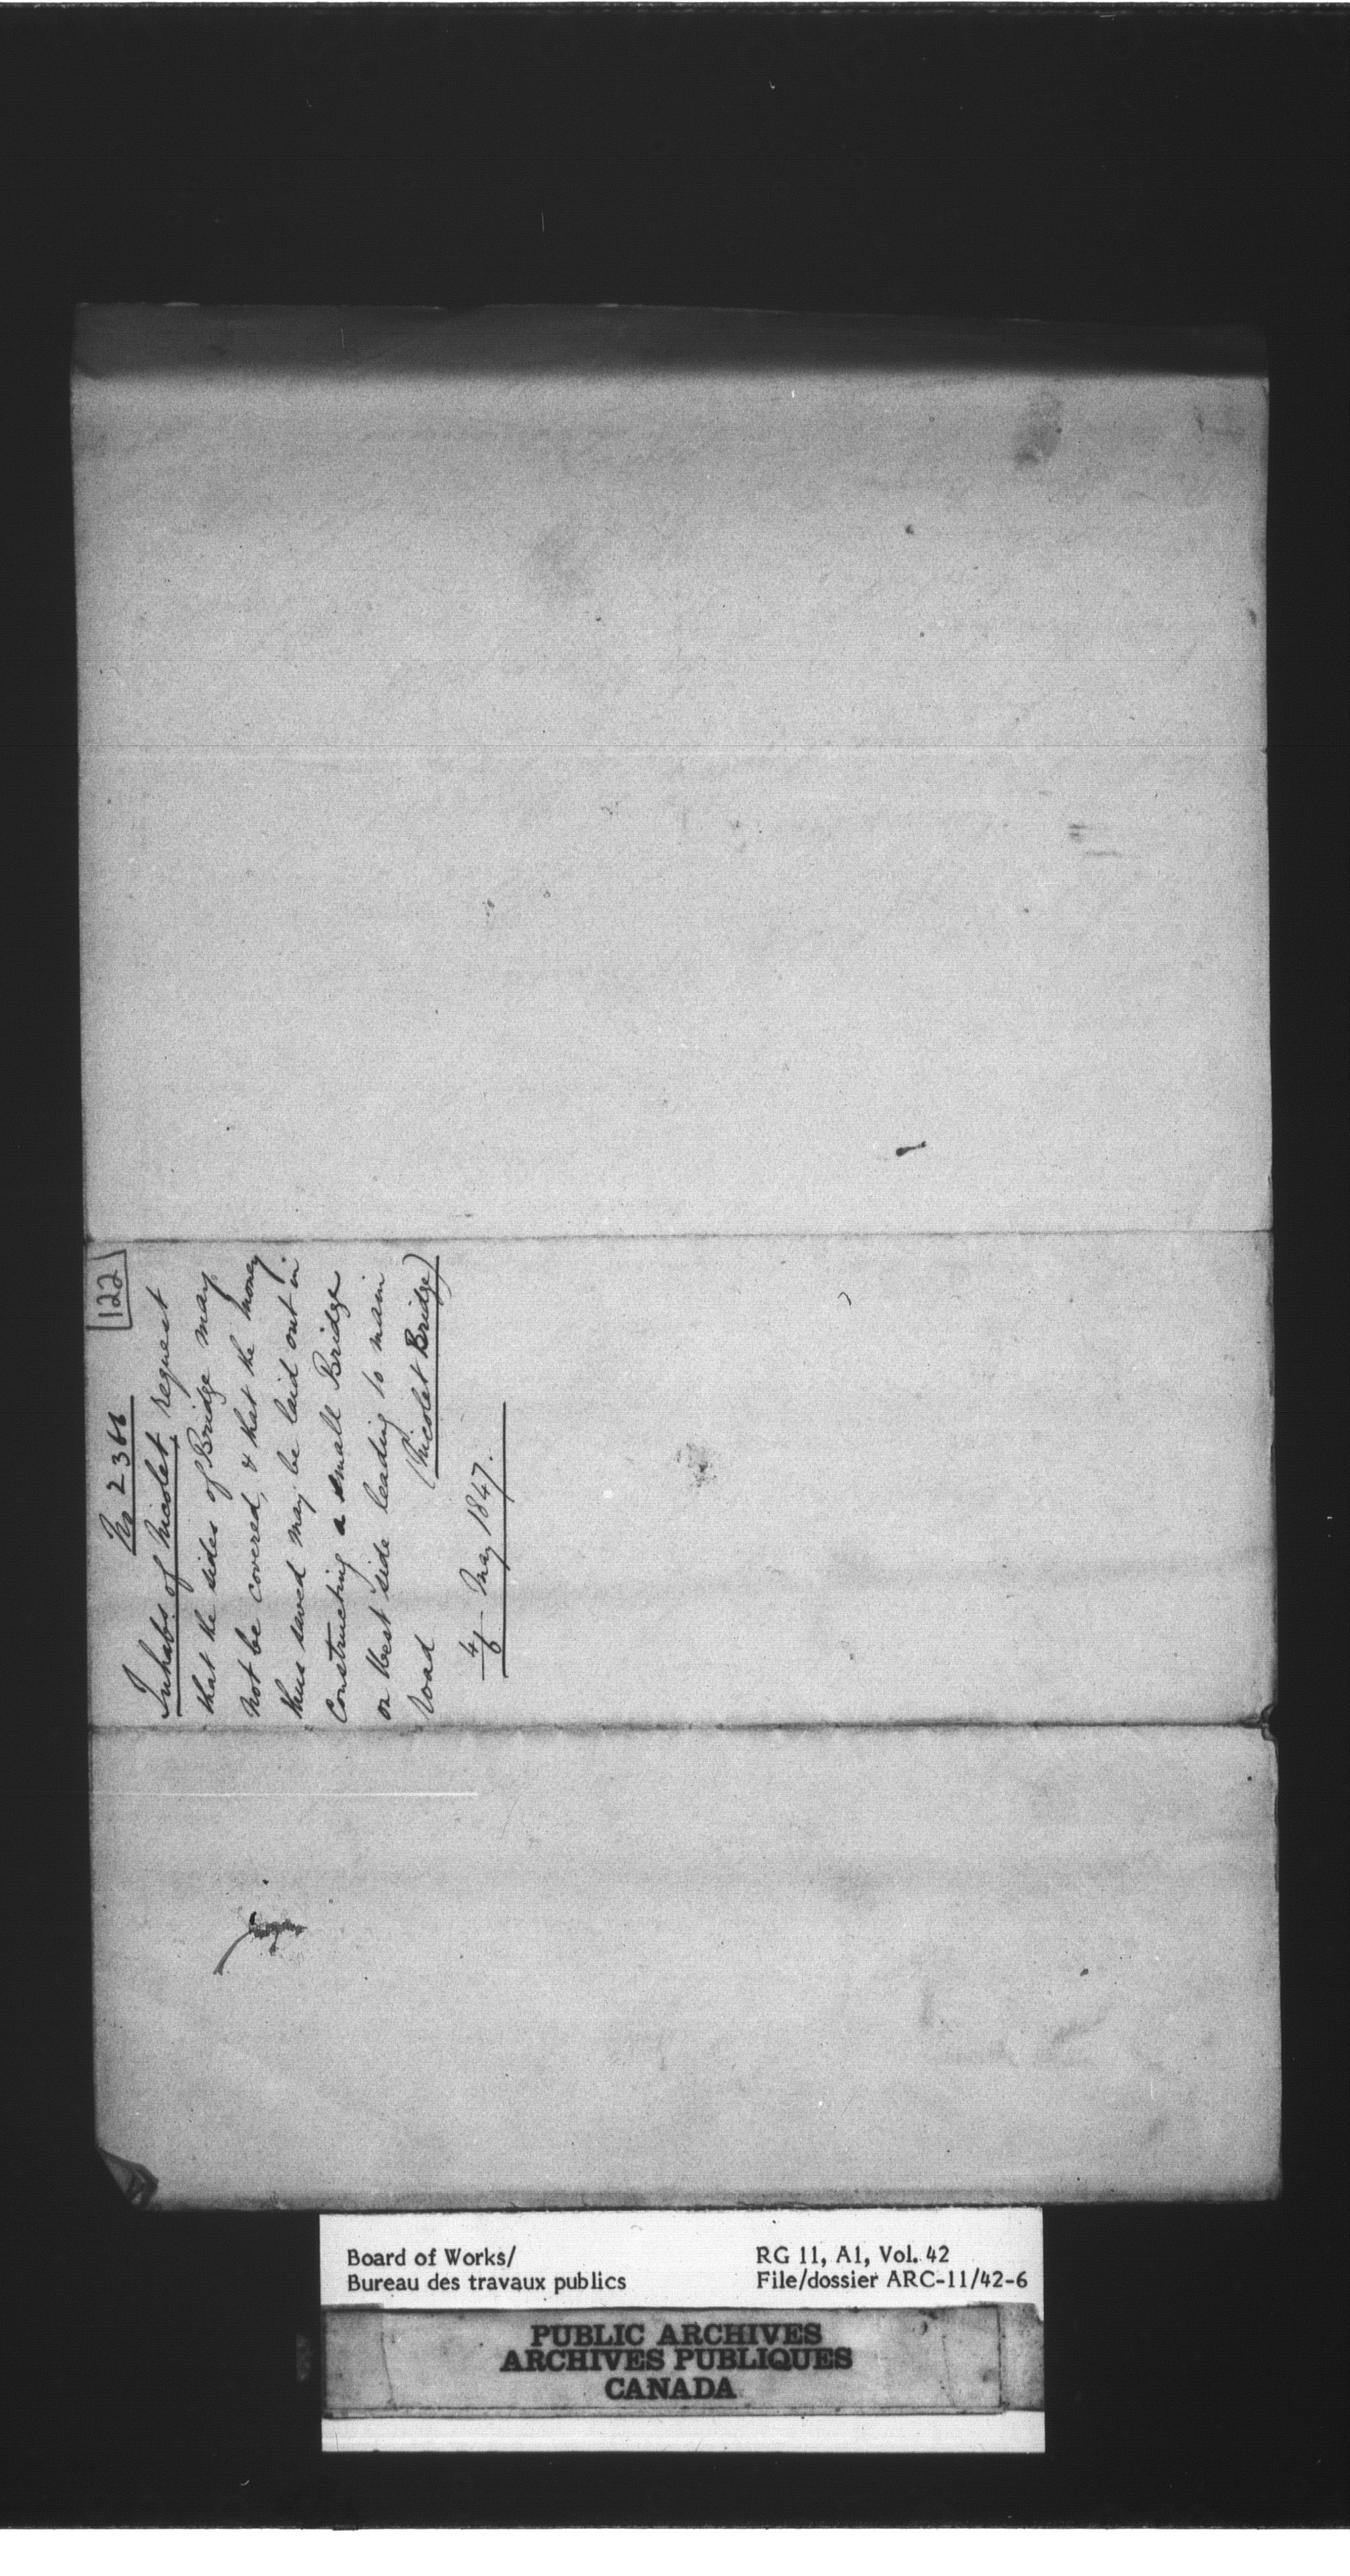 122
No 2366
Inhabs. of Nicolet, request
that the sides of Bridge may
not be covered, & that the money
thus saved may be laid out in
Constructing a small Bridge
on West side leading to main
road (Nicolet Bridge)
May 1847.
Board of Works/
Bureau des travaux publics
RG 11, A1, Vol. 42
File/dossier ARC-11/42-6
PUBLIC ARCHIVES
ARCHIVES PUBLIQUES
CANADA